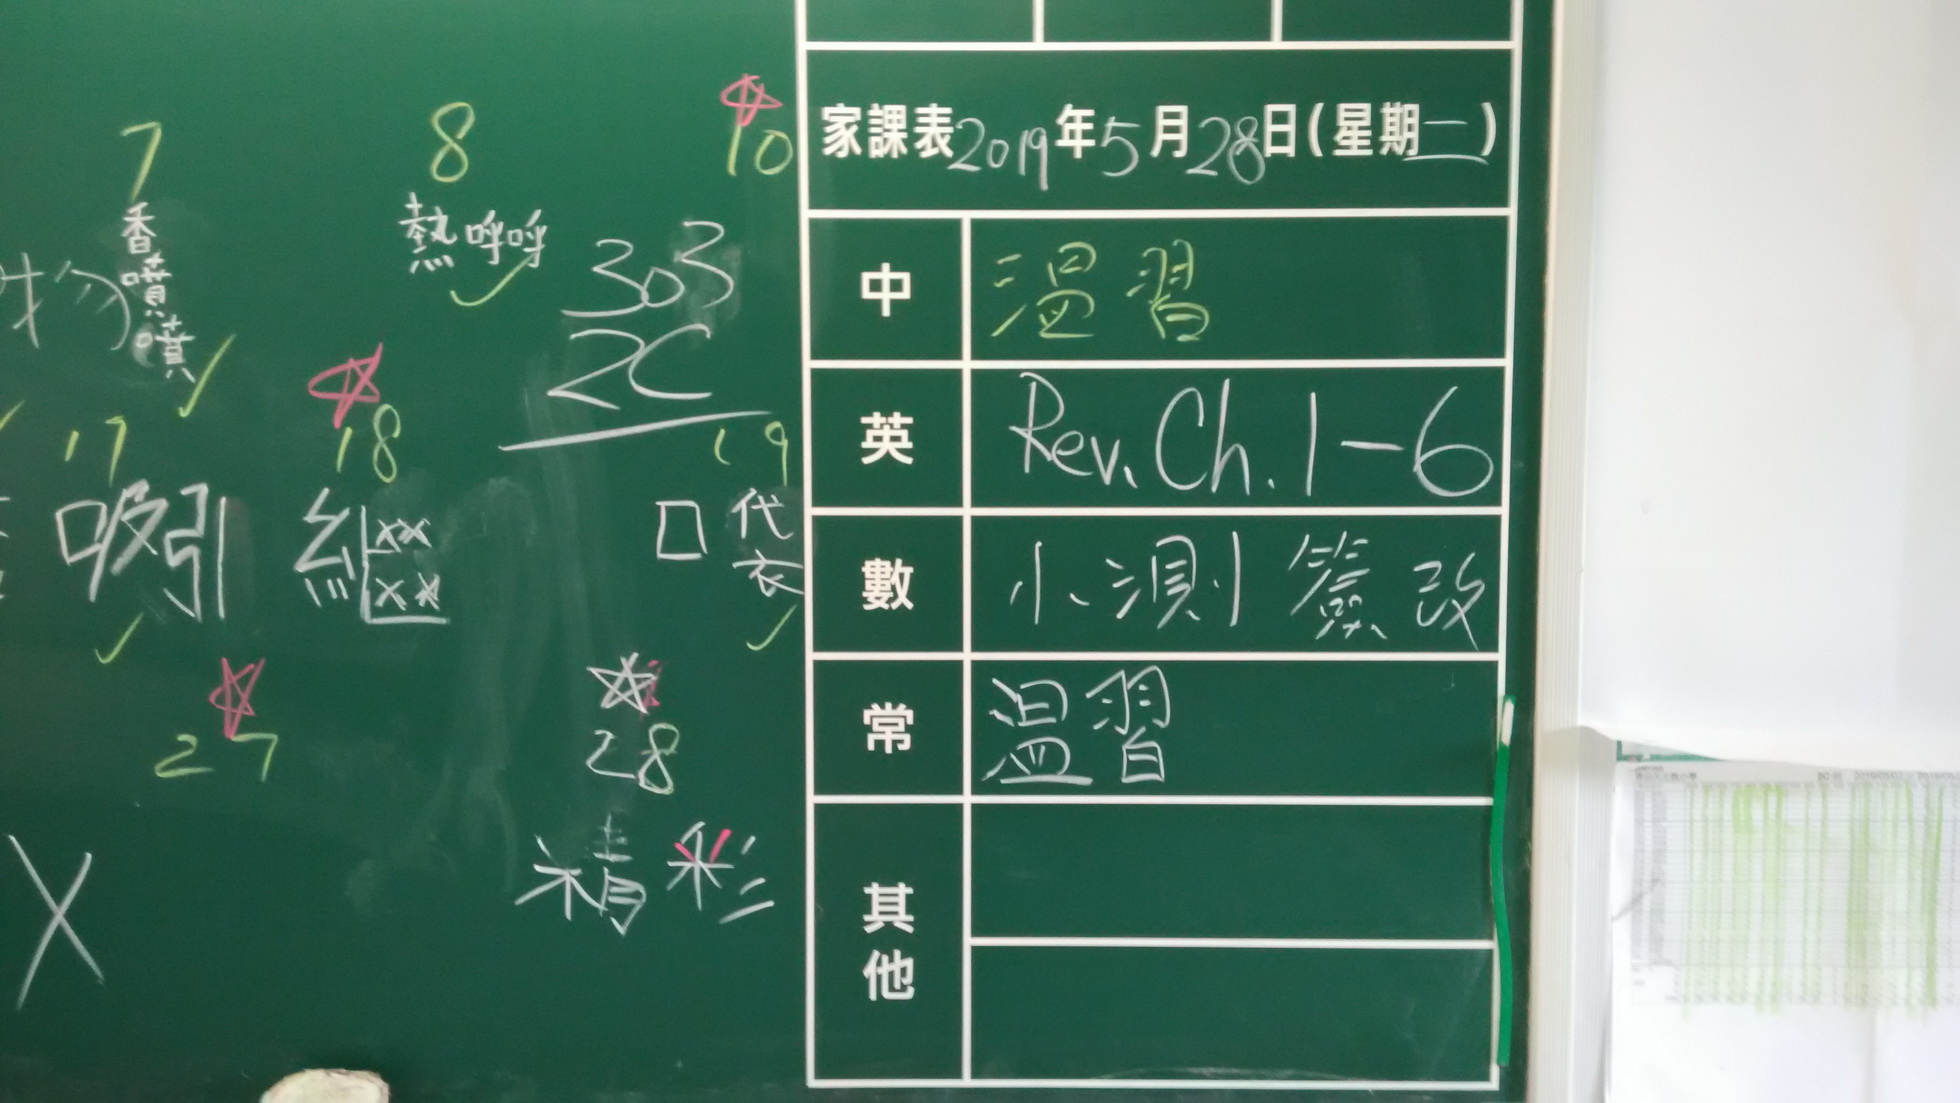 7
8
10
香噴噴
熱呼呼
物
303
2C
17
18
19
吸引
繼
口袋
27
28
精彩
X
家課表2019年5月28日(星期二)
中 溫習
英 Rev. Ch. 1-6
數 小測簽改
常 溫習
其他